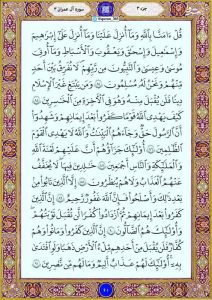 سورة آل عمران ٣
جزء ٣
قُلْ ءَامَنَّا بِٱللَّهِ وَمَآ أُنزِلَ عَلَيْنَا وَمَآ أُنزِلَ عَلَىٰٓ إِبْرَٰهِيمَ
وَإِسْمَٰعِيلَ وَإِسْحَٰقَ وَيَعْقُوبَ وَٱلْأَسْبَاطِ وَمَآ أُوتِيَ
مُوسَىٰ وَعِيسَىٰ وَٱلنَّبِيُّونَ مِن رَّبِّهِمْ لَا نُفَرِّقُ بَيْنَ أَحَدٍ
مِّنْهُمْ وَنَحْنُ لَهُۥ مُسْلِمُونَ ٨٤ وَمَن يَبْتَغِ غَيْرَ ٱلْإِسْلَٰمِ
دِينًا فَلَن يُقْبَلَ مِنْهُ وَهُوَ فِي ٱلْءَاخِرَةِ مِنَ ٱلْخَٰسِرِينَ ٨٥
كَيْفَ يَهْدِي ٱللَّهُ قَوْمًا كَفَرُوا۟ بَعْدَ إِيمَٰنِهِمْ وَشَهِدُوٓا۟
أَنَّ ٱلرَّسُولَ حَقٌّ وَجَآءَهُمُ ٱلْبَيِّنَٰتُ وَٱللَّهُ لَا يَهْدِي ٱلْقَوْمَ
ٱلظَّٰلِمِينَ ٨٦ أُو۟لَٰٓئِكَ جَزَآؤُهُمْ أَنَّ عَلَيْهِمْ لَعْنَةَ ٱللَّهِ
وَٱلْمَلَٰٓئِكَةِ وَٱلنَّاسِ أَجْمَعِينَ ٨٧ خَٰلِدِينَ فِيهَا لَا يُخَفَّفُ
عَنْهُمُ ٱلْعَذَابُ وَلَا هُمْ يُنظَرُونَ ٨٨ إِلَّا ٱلَّذِينَ تَابُوا۟ مِنۢ
بَعْدِ ذَٰلِكَ وَأَصْلَحُوا۟ فَإِنَّ ٱللَّهَ غَفُورٌ رَّحِيمٌ ٨٩ إِنَّ ٱلَّذِينَ
كَفَرُوا۟ بَعْدَ إِيمَٰنِهِمْ ثُمَّ ٱزْدَادُوا۟ كُفْرًا لَّن تُقْبَلَ تَوْبَتُهُمْ
وَأُو۟لَٰٓئِكَ هُمُ ٱلضَّآلُّونَ ٩٠ إِنَّ ٱلَّذِينَ كَفَرُوا۟ وَمَاتُوا۟ وَهُمْ
كُفَّارٌ فَلَن يُقْبَلَ مِنْ أَحَدِهِم مِّلْءُ ٱلْأَرْضِ ذَهَبًا وَلَوِ ٱفْتَدَىٰ
بِهِۦٓ أُو۟لَٰٓئِكَ لَهُمْ عَذَابٌ أَلِيمٌ وَمَا لَهُم مِّن نَّٰصِرِينَ ٩١
٦١